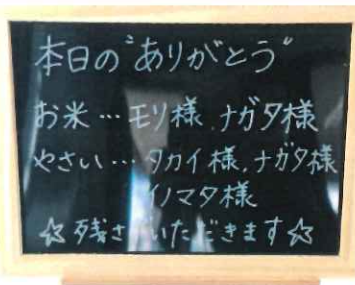 本日の"ありがとう"
お米…モリ様、ナガタ様
やさい…タカイ様、ナガタ様
イノマタ様
☆残さ いただきます☆